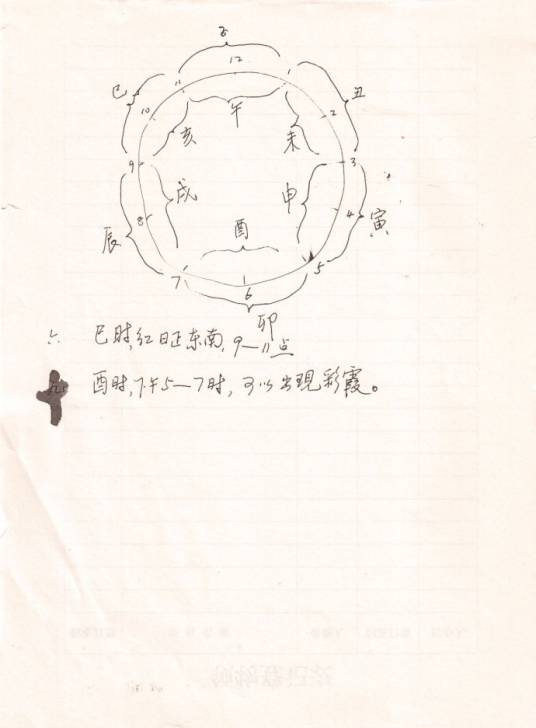 子
12
11
1
巳
丑
10
午
2
亥
未
9
3
戌
申
8
4
酉
辰
寅
7
5
6
卯
六 巳时,红日正东南,9—11点
酉时,下午5—7时,可以出现彩霞。